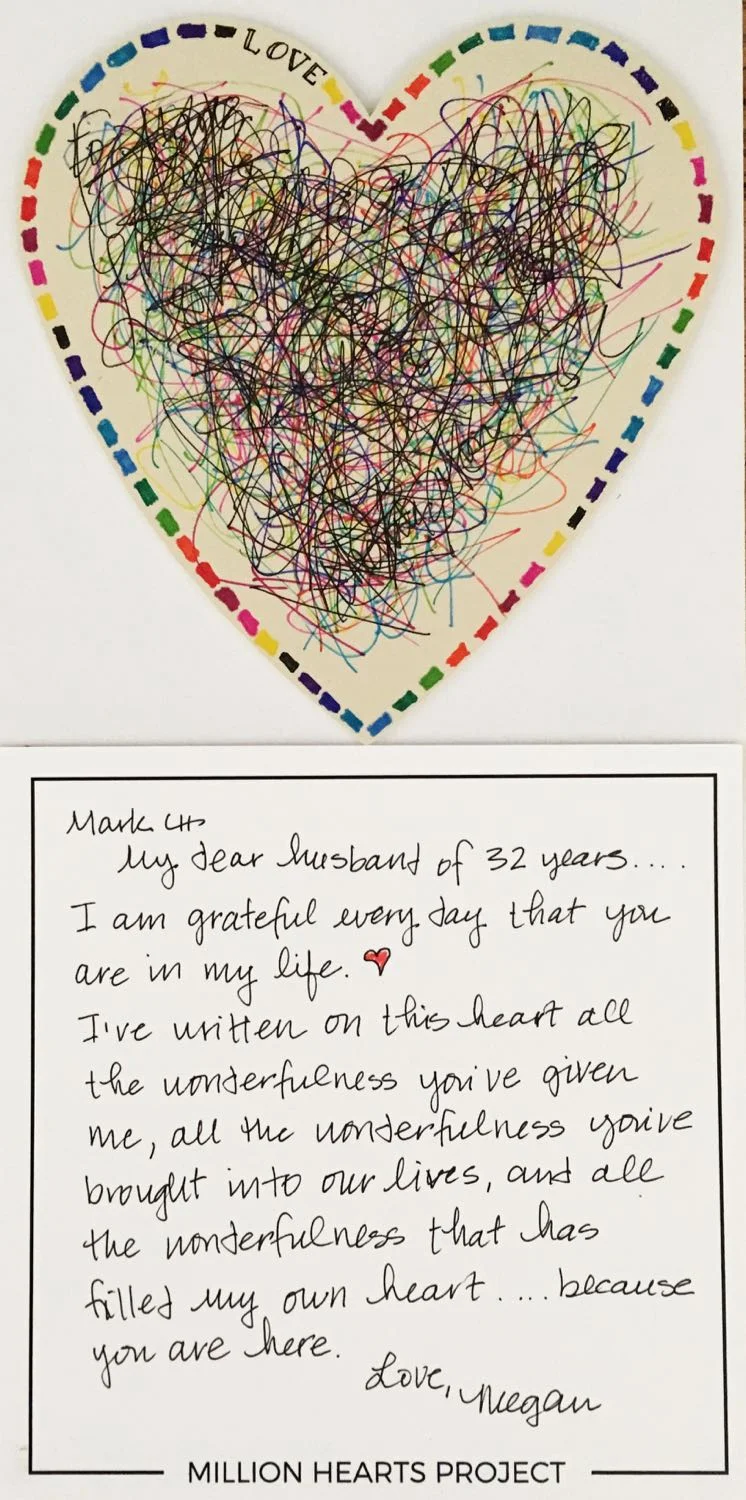 LOVE
Mark
My dear husband of 32 years....
I am grateful every day that you
are in my life.
I've written on this heart all
the wonderfulness you've given
me, all the wonderfulness you've
brought into our lives, and all
the wonderfulness that has
filled my own heart.... because
you are here.
Love, Megan
MILLION HEARTS PROJECT